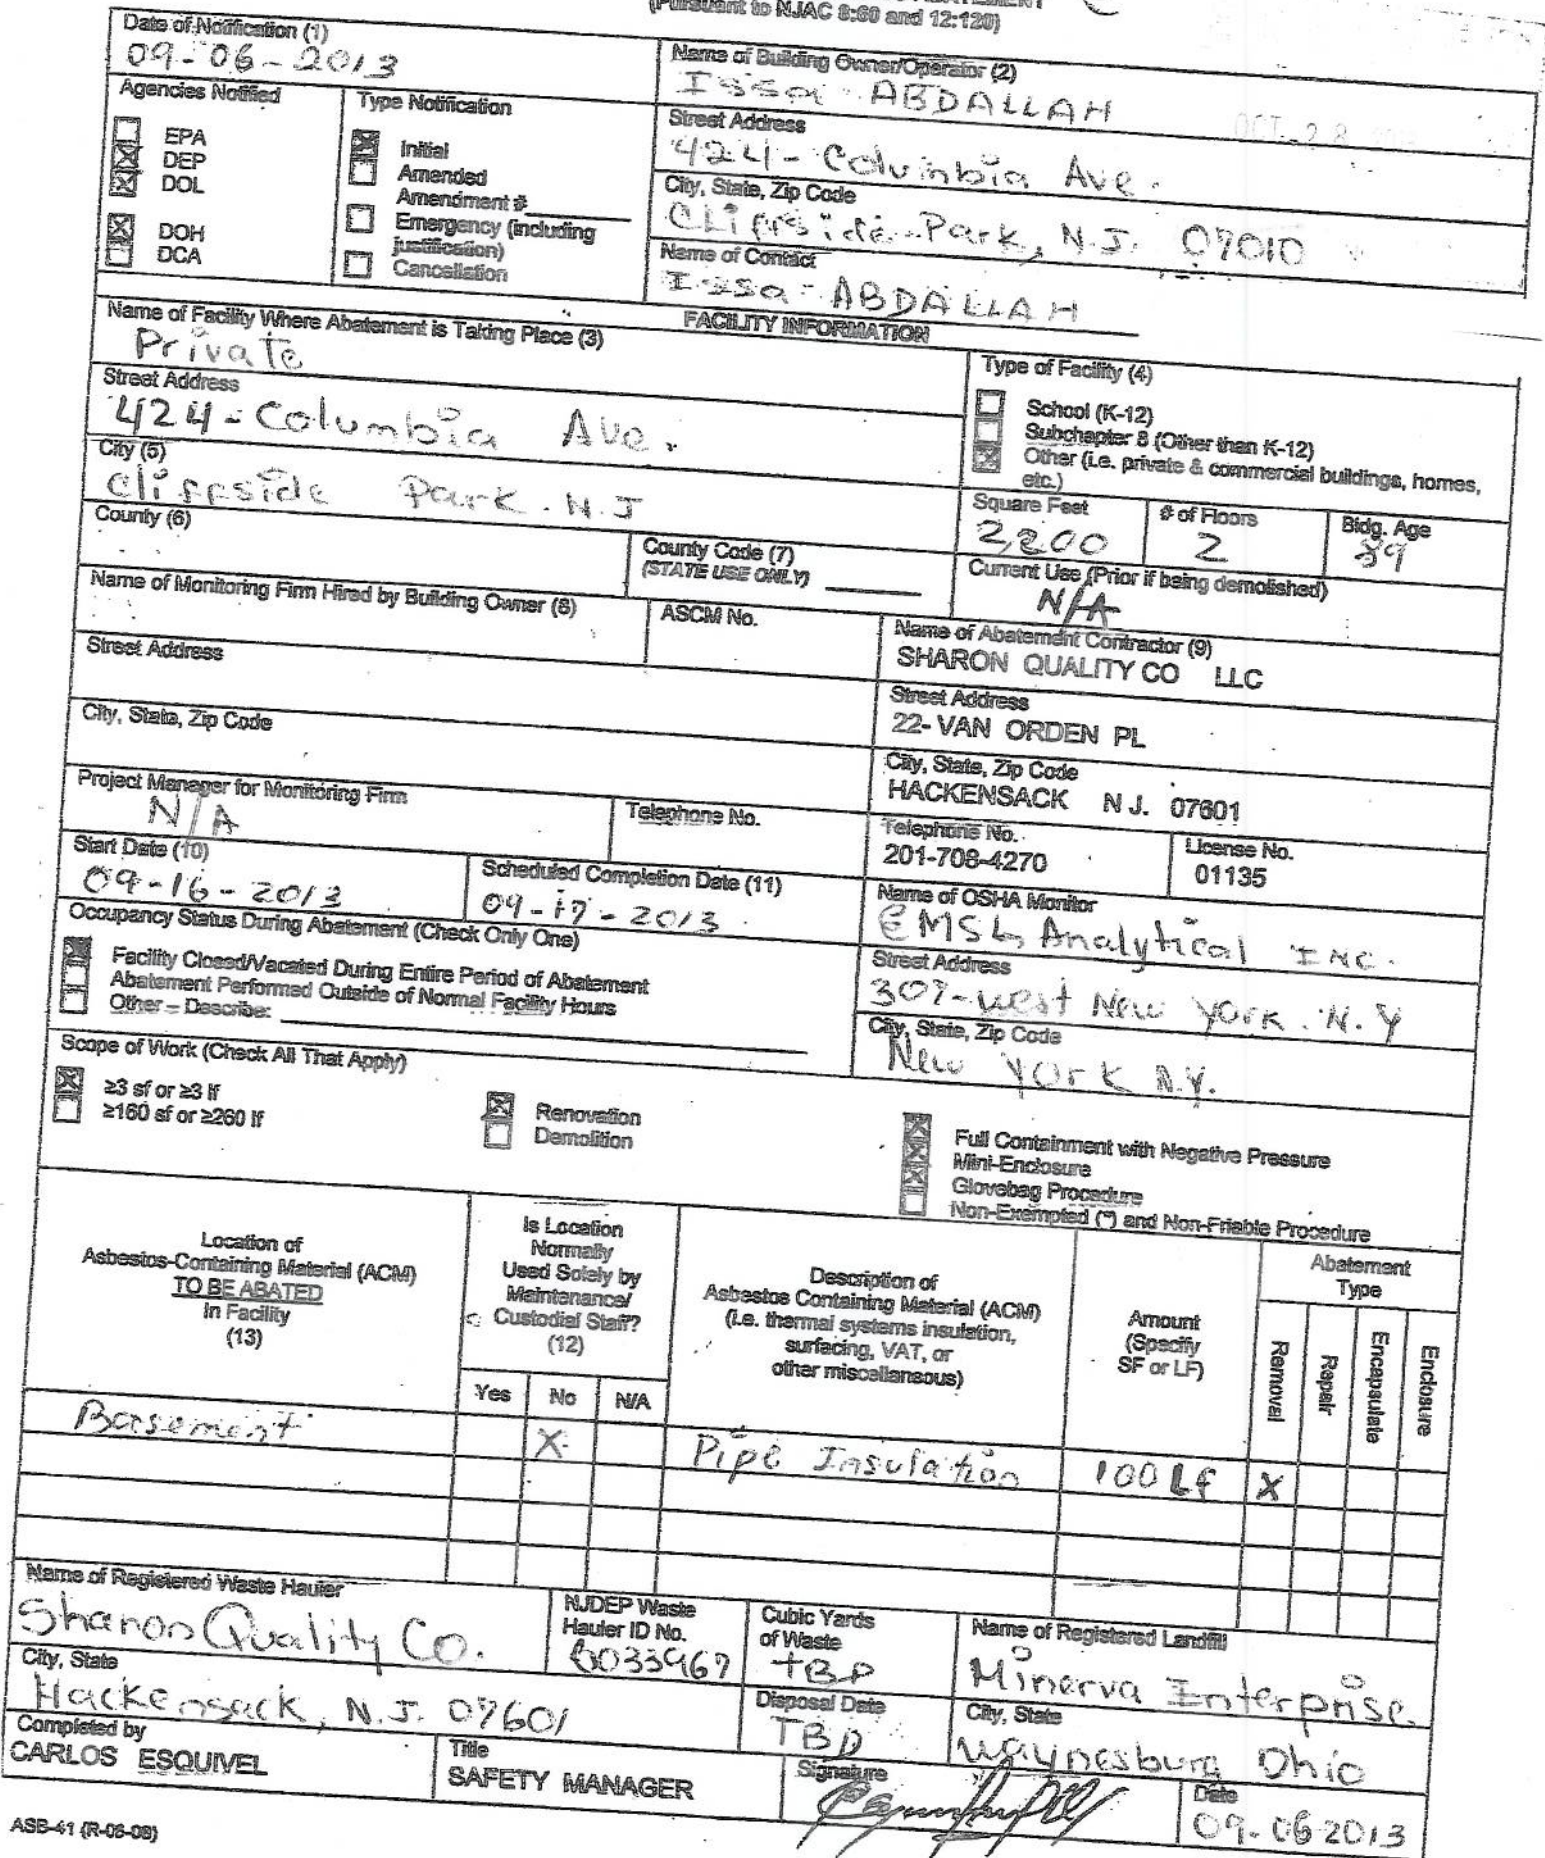 (Pursuant to NJAC 8:60 and 12:120)
Date of Notification (1)
09-06-2013
Name of Building Owner/Operator (2)
Issa - ABDALLAH
Agencies Notified
EPA
DEP
DOL
DOH
DCA
Type Notification
Initial
Amended
Amendment #
Emergency (including
justification)
Cancellation
Street Address
424 - Columbia Ave.
OCT 28
City, State, Zip Code
Cliffside Park, N.J. 07010
Name of Contact
Issa - ABDALLAH
FACILITY INFORMATION
Name of Facility Where Abatement is Taking Place (3)
Private
Street Address
424 - Columbia Ave.
City (5)
Cliffside Park. N.J
County (6)
County Code (7)
(STATE USE ONLY)
Type of Facility (4)
School (K-12)
Subchapter 8 (Other than K-12)
Other (i.e. private & commercial buildings, homes,
etc.)
Square Feet
2,200
# of Floors
2
Bldg. Age
89
Current Use (Prior if being demolished)
N/A
Name of Monitoring Firm Hired by Building Owner (8)
ASCM No.
Street Address
City, State, Zip Code
Project Manager for Monitoring Firm
N/A
Telephone No.
Name of Abatement Contractor (9)
SHARON QUALITY CO LLC
Street Address
22- VAN ORDEN PL
City, State, Zip Code
HACKENSACK N J. 07601
Telephone No.
201-708-4270
License No.
01135
Start Date (10)
09-16-2013
Scheduled Completion Date (11)
09-17-2013
Name of OSHA Monitor
EMSL Analytical INC.
Street Address
307-west New York. N.Y
City, State, Zip Code
New York N.Y.
Occupancy Status During Abatement (Check Only One)
Facility Closed/Vacated During Entire Period of Abatement
Abatement Performed Outside of Normal Facility Hours
Other – Describe:
Scope of Work (Check All That Apply)
≥3 sf or ≥3 lf
≥160 sf or ≥260 lf
Renovation
Demolition
Full Containment with Negative Pressure
Mini-Enclosure
Glovebag Procedure
Non-Exempted (*) and Non-Friable Procedure
Location of
Asbestos-Containing Material (ACM)
TO BE ABATED
In Facility
(13)
Is Location
Normally
Used Solely by
Maintenance/
Custodial Staff?
(12)
Yes No N/A
Description of
Asbestos Containing Material (ACM)
(i.e. thermal systems insulation,
surfacing, VAT, or
other miscellaneous)
Amount
(Specify
SF or LF)
Abatement
Type
Removal
Repair
Encapsulate
Enclosure
Basement X Pipe Insulation 100 Lf X
Name of Registered Waste Hauler
Sharon Quality Co.
NJDEP Waste
Hauler ID No.
0033967
Cubic Yards
of Waste
TBD
Name of Registered Landfill
Minerva Enterprise
City, State
Hackensack, N.J. 07601
Disposal Date
TBD
City, State
Waynesburg Ohio
Completed by
CARLOS ESQUIVEL
Title
SAFETY MANAGER
Signature
Date
09-06 2013
ASB-41 (R-06-08)